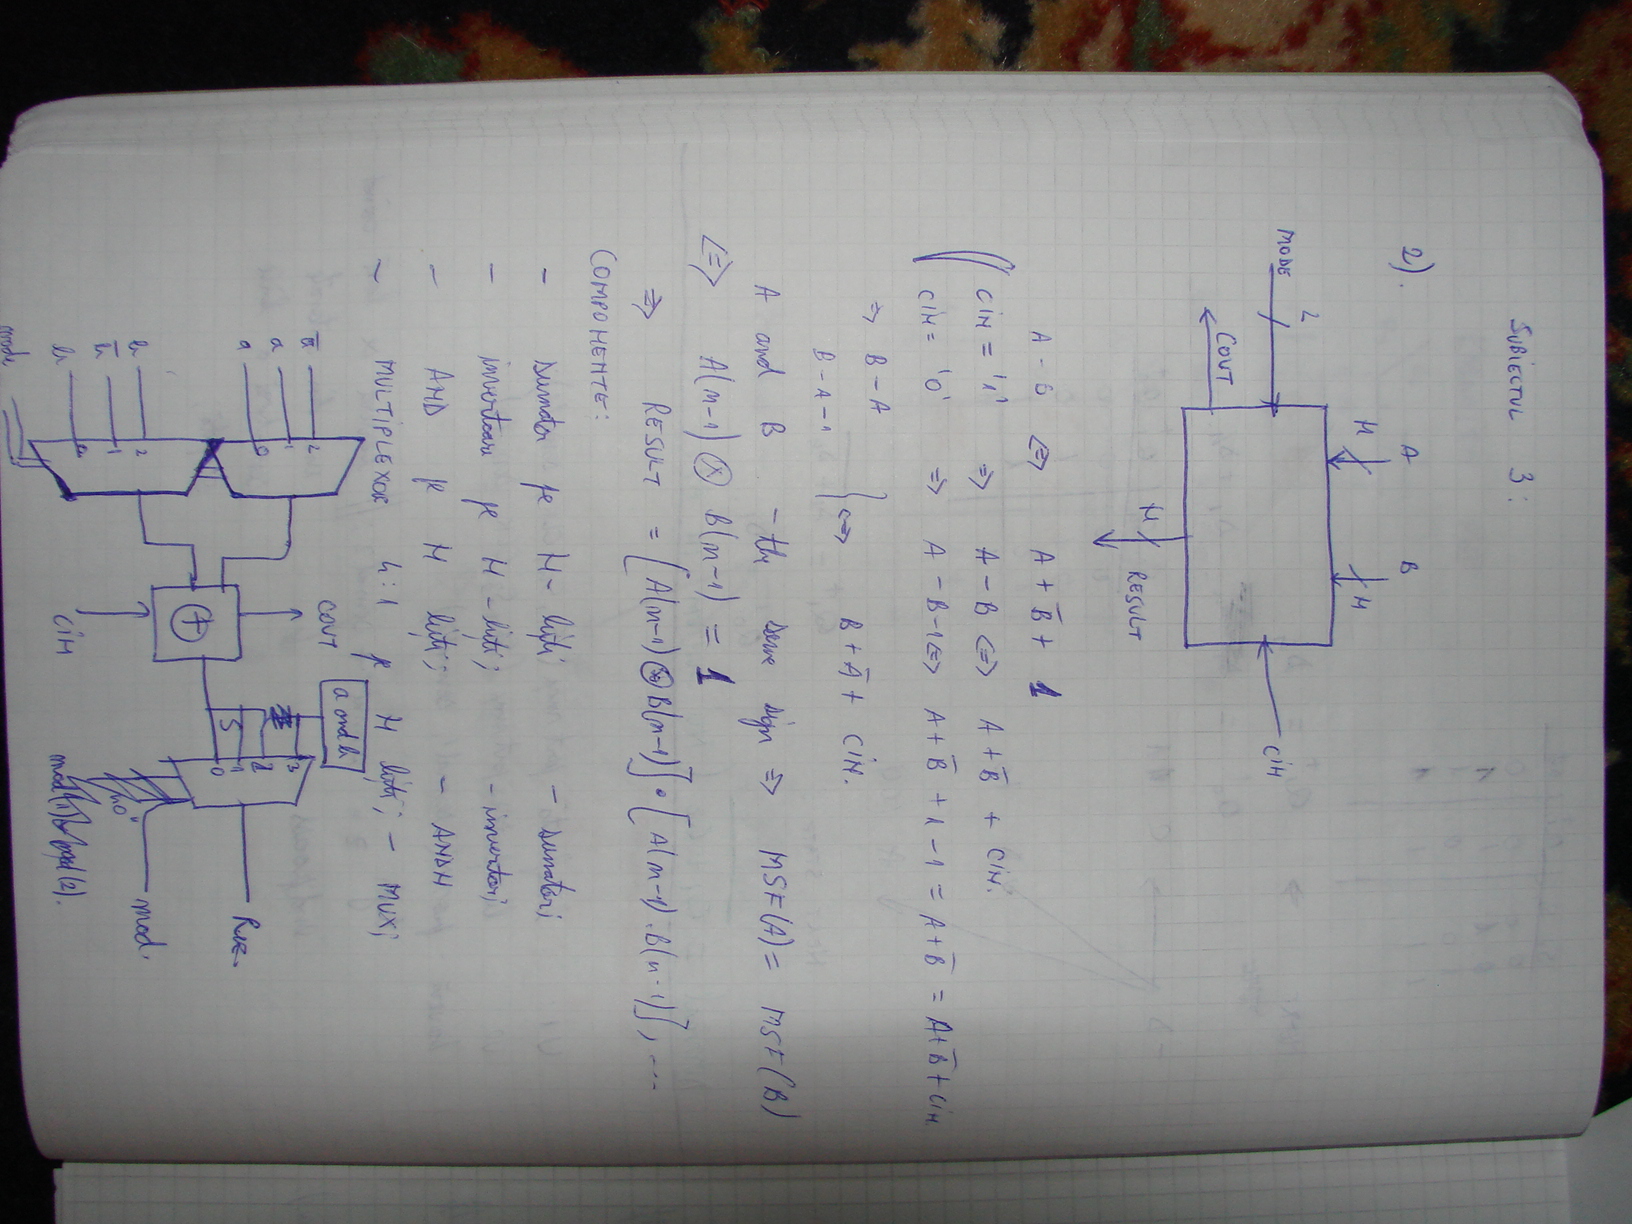 SUBIECTUL 3:
2).
A B
M M
MODE 2
CIN
COUT
M RESULT
A - B <=> A + B̅ + 1
CIN = '1' => A - B <=> A + B̅ + CIN.
CIN = '0' => A - B - 1 <=> A + B̅ + 1 - 1 = A + B̅ = A + B̅ + CIN
=> B - A
B - A - 1 } <=> B + A̅ + CIN.
A and B - the same sign => MSF(A) = MSF(B)
<=> A(m-1) ⊗ B(m-1) = 1
=> RESULT = [A(m-1) ⊗ B(m-1)] • [A(m-1) . B(m-1)], ...
COMPONENTE:
- Sumator pe M - biți; - sumator;
- inversoare pe M - biți; - inversor;
- AND pe M biți; - ANDM
- MULTIPLEXOR 4:1 pe M biți; - MUX;
a̅ 2
a 1
a 0
b 2
b̅ 1
b 0
mode
COUT
+
CIN
a and b
3
2
1
0
S
"0"
mod.
Rez.